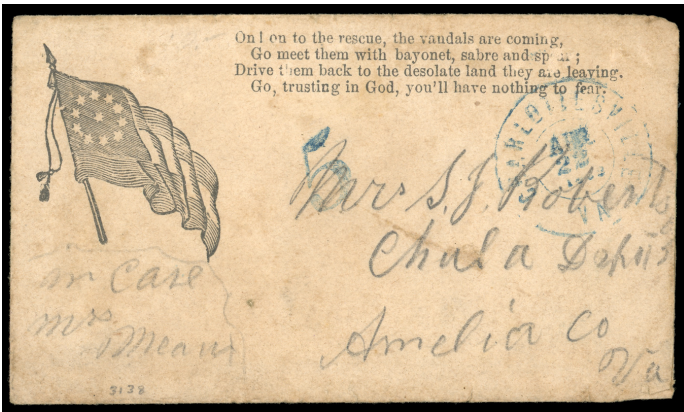 On! on to the rescue, the vandals are coming,
Go meet them with bayonet, sabre and spear;
Drive them back to the desolate land they are leaving.
Go, trusting in God, you'll have nothing to fear.
CHARLOTTESVILLE
APR
22
VA
Mrs S. J. Roberts
Chula Depot
Amelia Co
Va
in Care
Mrs.
Means
3138